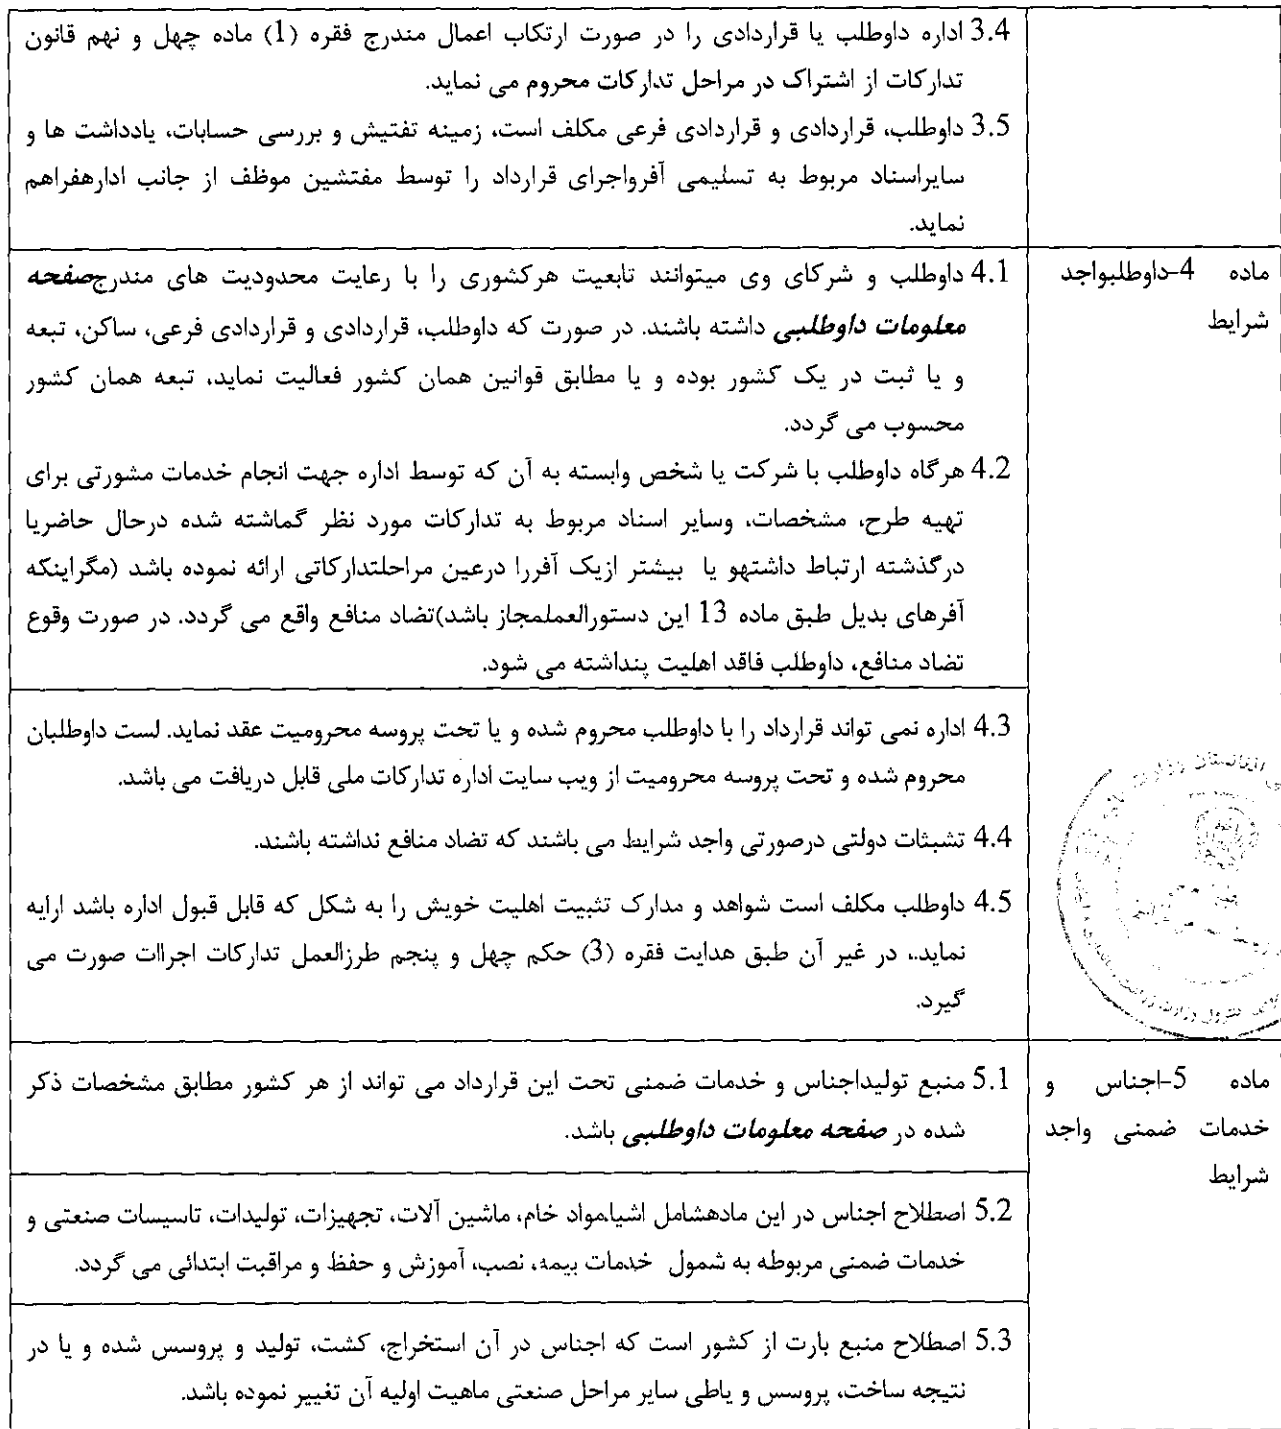 3.4 اداره داوطلب یا قراردادی را در صورت ارتکاب اعمال مندرج فقره (1) ماده چهل و نهم قانون
تدارکات از اشتراک در مراحل تدارکات محروم می نماید.
3.5 داوطلب، قراردادی و قراردادی فرعی مکلف است، زمینه تفتیش و بررسی حسابات، یادداشت ها و
سایراسناد مربوط به تسلیمی آفرواجرای قرارداد را توسط مفتشین موظف از جانب ادارهفراهم
نماید.
ماده 4-داوطلبواجد
شرایط
4.1 داوطلب و شرکای وی میتوانند تابعیت هرکشوری را با رعایت محدودیت های مندرجصفحه
معلومات داوطلبی داشته باشند. در صورت که داوطلب، قراردادی و قراردادی فرعی، ساکن، تبعه
و یا ثبت در یک کشور بوده و یا مطابق قوانین همان کشور فعالیت نماید، تبعه همان کشور
محسوب می گردد.
4.2 هرگاه داوطلب با شرکت یا شخص وابسته به آن که توسط اداره جهت انجام خدمات مشورتی برای
تهیه طرح، مشخصات، وسایر اسناد مربوط به تدارکات مورد نظر گماشته شده درحال حاضریا
درگذشته ارتباط داشتهو یا بیشتر ازیک آفررا درعین مراحلتدارکاتی ارائه نموده باشد (مگراینکه
آفرهای بدیل طبق ماده 13 این دستورالعملمجاز باشد)تضاد منافع واقع می گردد. در صورت وقوع
تضاد منافع، داوطلب فاقد اهلیت پنداشته می شود.
4.3 اداره نمی تواند قرارداد را با داوطلب محروم شده و یا تحت پروسه محرومیت عقد نماید. لست داوطلبان
محروم شده و تحت پروسه محرومیت از ویب سایت اداره تدارکات ملی قابل دریافت می باشد.
4.4 تشبثات دولتی درصورتی واجد شرایط می باشند که تضاد منافع نداشته باشند.
4.5 داوطلب مکلف است شواهد و مدارک تثبیت اهلیت خویش را به شکل که قابل قبول اداره باشد ارایه
نماید.، در غیر آن طبق هدایت فقره (3) حکم چهل و پنجم طرزالعمل تدارکات اجراات صورت می
گیرد.
ماده 5-اجناس و
خدمات ضمنی واجد
شرایط
5.1 منبع تولیداجناس و خدمات ضمنی تحت این قرارداد می تواند از هر کشور مطابق مشخصات ذکر
شده در صفحه معلومات داوطلبی باشد.
5.2 اصطلاح اجناس در این مادهشامل اشیا،مواد خام، ماشین آلات، تجهیزات، تولیدات، تاسیسات صنعتی و
خدمات ضمنی مربوطه به شمول خدمات بیمه، نصب، آموزش و حفظ و مراقبت ابتدائی می گردد.
5.3 اصطلاح منبع بارت از کشور است که اجناس در آن استخراج، کشت، تولید و پروسس شده و یا در
نتیجه ساخت، پروسس و یاطی سایر مراحل صنعتی ماهیت اولیه آن تغییر نموده باشد.